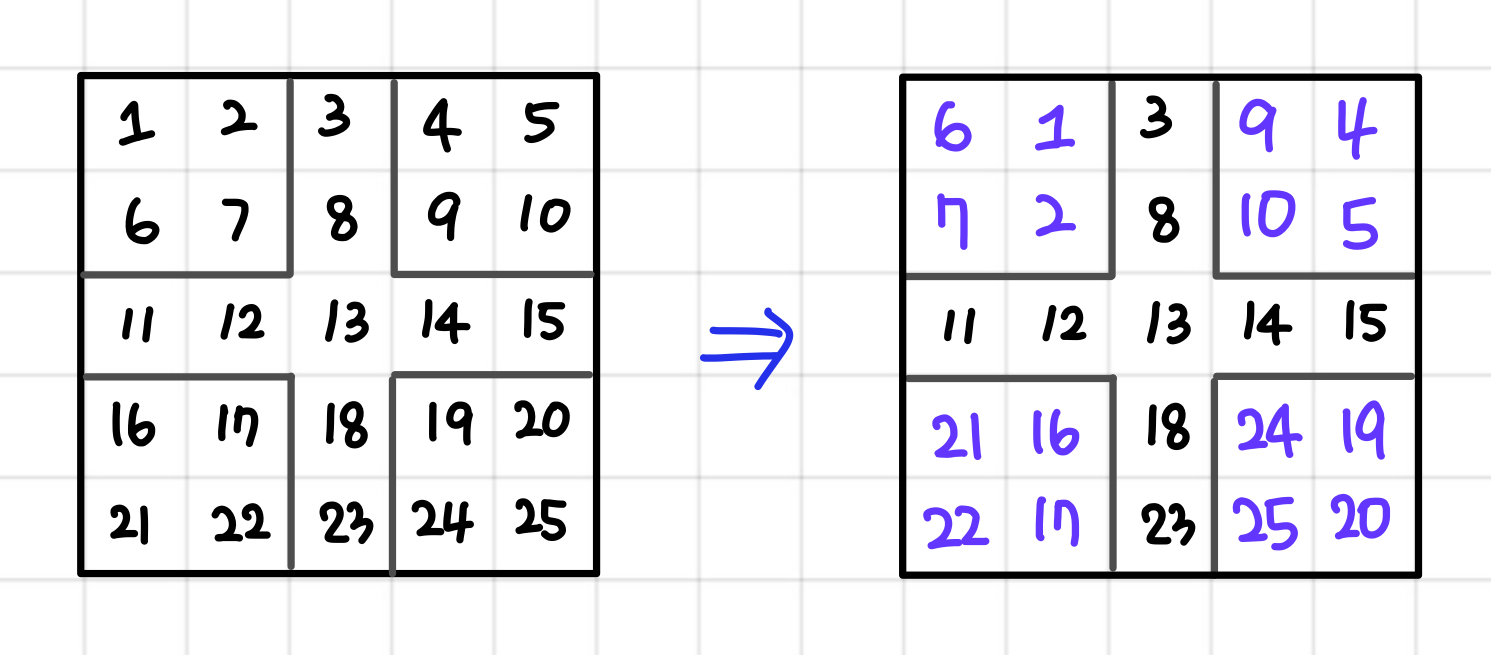 1 2 3 4 5
6 7 8 9 10
11 12 13 14 15
16 17 18 19 20
21 22 23 24 25
6 1 3 9 4
7 2 8 10 5
11 12 13 14 15
21 16 18 24 19
22 17 23 25 20